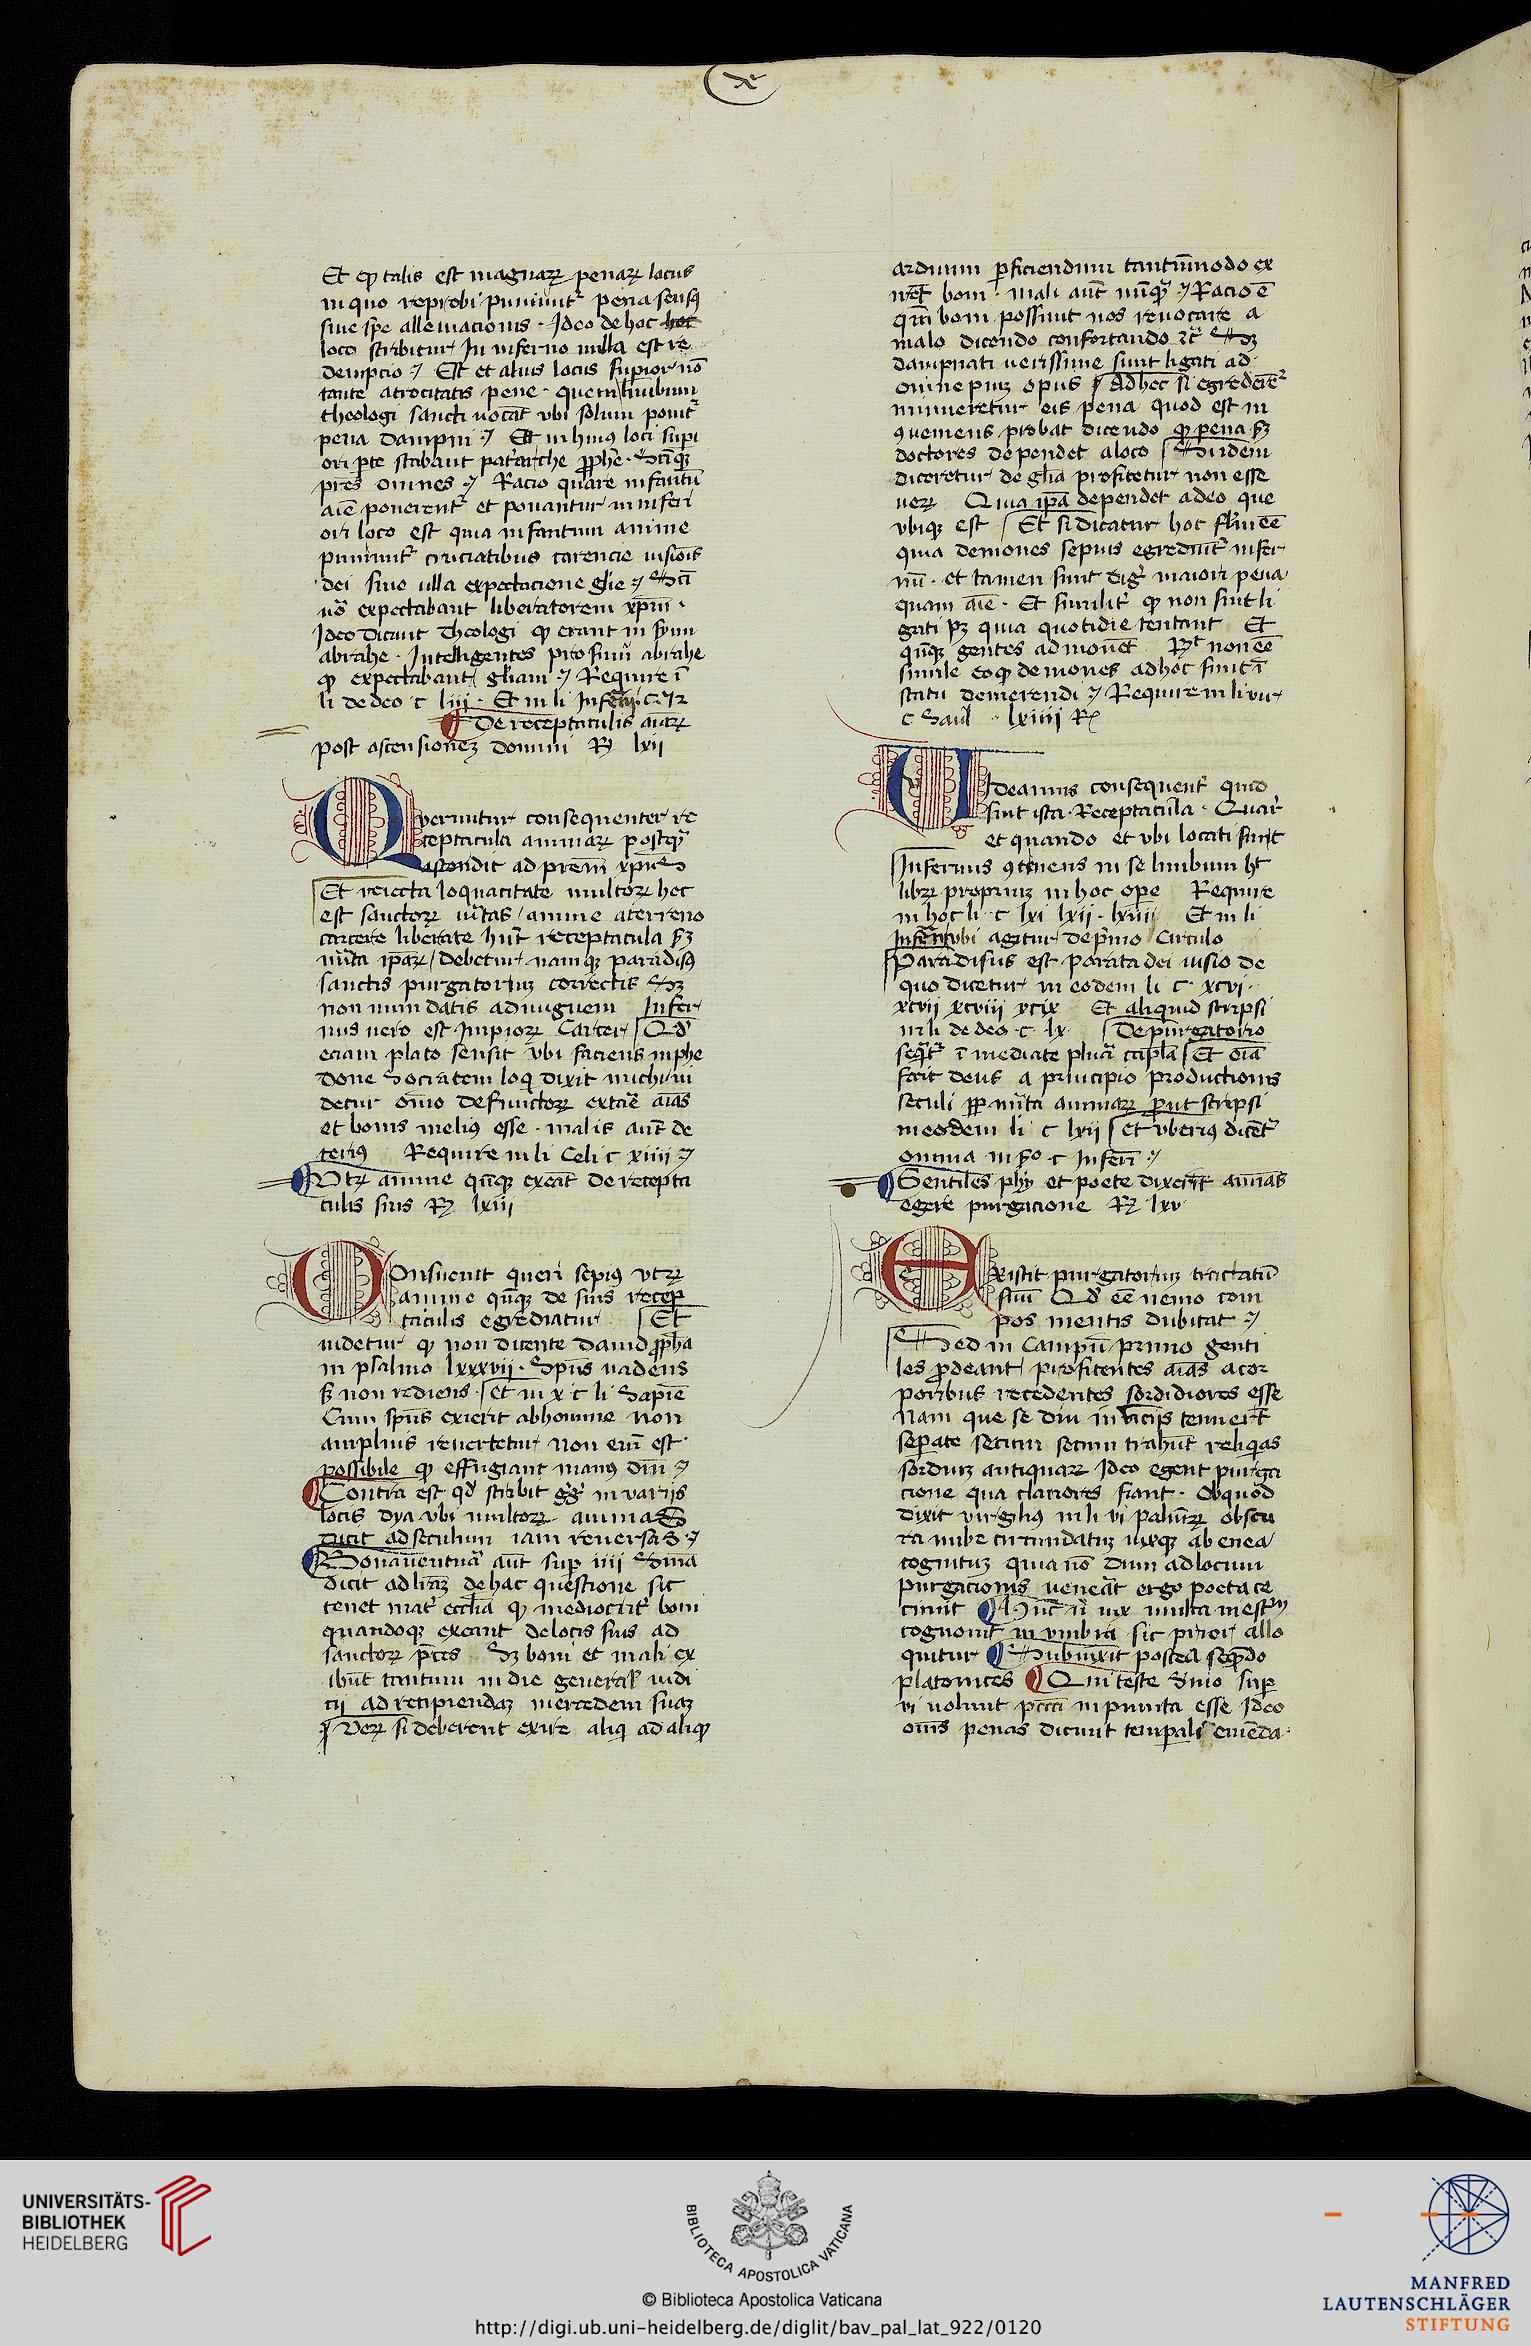 x
Et ꝙ talis est magnaꝝ penaꝝ locus
in quo reprobi puniunt᷑ pena sensꝰ
sine spe alleuiacionis · Ideo de hoc hoc
loco scribitur In inferno nulla est re
dempcio Est et alius locus suꝑior nō
tante atrocitatis pene · quem limbum
theologi sancti uocāt vbi solum ponit᷑
pena dampni Et in huius loci supi
ori ꝑte stabant pat̾arche ꝓphē · Sc̄iqꝫ
pr̄es omnes Racio quare infantū
aīe ponerent᷑ et ponantur in inferi
ori loco est quia infantum anime
puniunt᷑ cruciatibus carencie uisiōis
dei sine ulla expectacione gl̄ie Sc̄i
uō expectabant liberatorem xp̄m ·
Ideo dicunt theologi ꝙ erant in synu
abrahe · Intelligentes pro sinū abrahe
ꝙ expectabant gl̄iam Require ī
li de deo · c liii · Et in li Inferni · c · 12
De receptaculis aīaꝝ
post ascensionēꝫ domini Rͤ lxii
Queruntur consequenter re
ceptacula animaꝝ postqᷓ
ascendit ad prem̄ xp̄us
Et reiecta loquacitate multoꝝ hec
est sanctoꝝ uītas / anime a terreno
carcere liberate hn̄t receptacula ẜꝫ
mīta ip̄aꝝ / Debetur namqꝫ paradisꝰ
sanctis purgatoriuꝫ correctis Sꝫ
non mundatis ad unguem Infer
nus uero est Impioꝝ Carcer Qd̾
eciam plato sensit vbi faciens in phe
done Socratem loq̄ dixit michi ui
detur omīo defunctoꝝ extare aīas
et bonis meliꝰ esse · malis aūt de
teriꝰ Require in li Celi c xiiii
Vtꝝ anime qn̄qꝫ exeāt de recepta
culis suis Rͤ lxiii
Consueuit queri sepiꝰ vtꝝ
anime qn̄qꝫ de suis recep
taculis egrediatur Et
uidetur ꝙ non dicente dauid ꝓph̄a
in psalmo lxxvii · Spūs uadens
ẜꝫ non rediens · et in x c li Sapiē
Cum spūs exierit ab homine non
amplius reuertetur non enī est
possibile ꝙ effugiant manꝰ dn̄i
Contra est qd̾ scribit gͥgͥ in varijs
locis dya vbi multoꝝ animas
dicit ad seculum iam reuersas
Bonauentura aūt suꝑ iiii Snīa
dicit ad lr̄aꝫ de hac questione sic
tenet mat̾ eccl̄ia ꝙ mediocrit̾ boni
quandoqꝫ exeant de locis suis ad
sanctoꝝ p̄ces Sꝫ boni et mali ex
ibūt tantum in die general̾ iudi
cij ad recipiendaꝫ mercedem suaꝫ
Veꝝ si deberent exire aliqͥ ad aliqͦ
arduum ꝑficiendum tantūmodo ex
irēt boni · mali aūt nūqᷓ Racio ē
qm̄ boni possunt nos reuocare a
malo dicendo confortando ⁊c̄ Sꝫ
dampnati uerissime sunt ligati ad
omne piuꝫ opus Ad hec si egredeīet᷑
minueretur eis pena quod est in
ꝯueniens probat dicendo ꝙ pena ẜꝫ
doctores dependet a loco Si idem
diceretur de gl̄ia profitetur non esse
ueꝝ Quia ip̄a dependet a deo que
vbiqꝫ est Et si dicatur hoc fl̄m eē
quia demones sepius egrediūt̾ infer
nū · et tamen sunt dig̾ maiori pena
quam aīe · Et similit̾ ꝙ non sint li
gati pꝫ quia quotidie tentant Et
qn̄qꝫ gentes admonēt Rͭ non eē
simile eo ꝙ demones ad hoc sint ī
statu demerendi Require in li vir
c Saul lxiiii Rͤ
Videamus consequent̾ quid
sint ista Receptacula · Quar̄
et quando et vbi locati sint
Infernus ꝯtinens in se limbum hꝫ
libꝝ propriuꝫ in hoc opere Require
in hoc li · c lxi lxii · lxiiii Et in li
Inferni vbi agitur de p̄mo Circulo
Paradisus est parata dei uisio de
quo dicetur in eodem li c xcvi ·
xcvii xcviii xcix Et aliquid scripsi
in li de deo · c lx De purgatorio
seqͥt᷑ īmediate plura cap̄la Et oīa
fecit deus a principio productionis
seculi ꝓpͭ mīta animaꝝ ꝓut scripsi
in eodem li c lxii et vberiꝰ dicēt᷑
omnia in ẜo c Inferī
Gentiles phī et poete dixert̄ animas
egere purgacione Rͤ lxv
Existit purgatoriuꝫ tractatū
suū Qd̾ eē nemo com
pos mentis dubitat
Sed in Campū primo genti
les ꝓdeant profitentes aīas a cor
poribus recedentes sordidiores esse
Nam que se diu in uicijs tenuert̄
seperate secum trahūt reliqͥas
sorduꝫ antiquaꝝ Ideo egent purga
cione qua clariores fiant · Ob quod
dixit virgiliꝰ in li vi palinuꝝ obscu
ra nube circundatuꝫ uixqꝫ ab enea
cognituꝫ quia nō dum ad locum
purgacionis uenerāt ergo poeta ce
cinit Hūc ū uix multa mestūꝫ
cognouit in vmbra sic prior allo
quitur Subiunxit postea seqn̄do
platonices Qui teste Suio suꝑ
vi nolunt pcc̄ā inpunita esse Ideo
oīns penas dicunt temporali emēda
UNIVERSITÄTS-
BIBLIOTHEK
HEIDELBERG
BIBLIOTECA APOSTOLICA VATICANA
© Biblioteca Apostolica Vaticana
http://digi.ub.uni-heidelberg.de/diglit/bav_pal_lat_922/0120
MANFRED
LAUTENSCHLÄGER
STIFTUNG